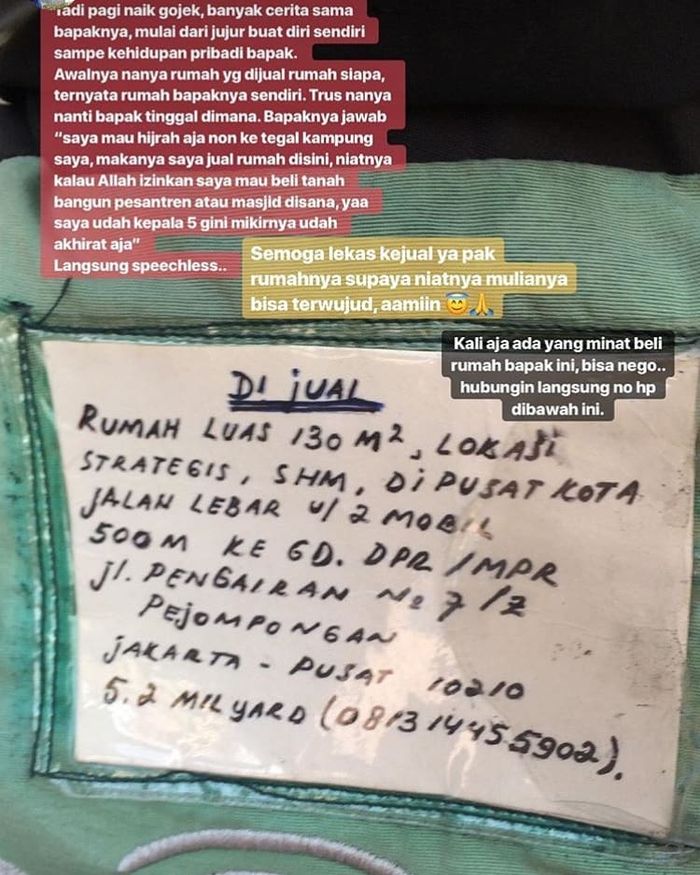 Tadi pagi naik gojek, banyak cerita sama
bapaknya, mulai dari jujur buat diri sendiri
sampe kehidupan pribadi bapak.
Awalnya nanya rumah yg dijual rumah siapa,
ternyata rumah bapaknya sendiri. Trus nanya
nanti bapak tinggal dimana. Bapaknya jawab
“saya mau hijrah aja non ke tegal kampung
saya, makanya saya jual rumah disini, niatnya
kalau Allah izinkan saya mau beli tanah
bangun pesantren atau masjid disana, yaa
saya udah kepala 5 gini mikirnya udah
akhirat aja”
Langsung speechless..
Semoga lekas kejual ya pak
rumahnya supaya niatnya mulianya
bisa terwujud, aamiin 😇🙏
Kali aja ada yang minat beli
rumah bapak ini, bisa nego..
hubungin langsung no hp
dibawah ini.
DI JUAL
RUMAH LUAS 130 M², LOKASI
STRATEGIS, SHM, DI PUSAT KOTA
JALAN LEBAR U/ 2 MOBIL
500M KE GD. DPR/MPR
Jl. PENGAIRAN No 7/Z
PEJOMPONGAN
JAKARTA - PUSAT 10210
5.2 MILYARD (081314455902).